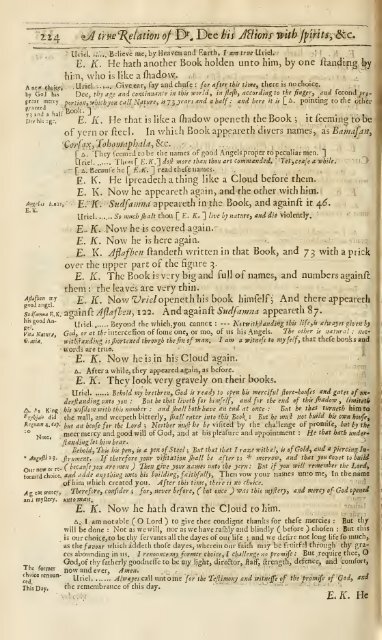 224 A true Relation of Dr. Dee his Actions with spirits, &c.
Uriel. ..... Believe me, by Heaven and Earth. I am true Uriel.
E. K. He hath another Book holden unto him, by one standing by
him, who is like a shadow.
Uriel. ..... Give ear, say and chuse : for after this time, there is no choice.
Dee, thy age and continuance in this world, in flesh, according to the finger, and second pro-
portion, which you call Nature, is 73 years and a half : and here it is [ Δ. pointing to the other
Book. ]
E. K. He that is like a shadow openeth the Book ; it seeming to be
of yern or steel. In which Book appeareth divers names, as Bamasan,
Corsax, Tohomaphala, &c.
[ Δ. They seemed to be the names of good Angels proper to peculiar men. ]
Uriel. ..... Thou [ E. K. ] dost more then thou art commanded. Yet, cease a while.
[ Δ. Because he [ E. K. ] read these names.
E. K. He spreadeth a thing like a Cloud before them.
E. K. Now he appeareth again, and the other with him.
E. K. Sudsamma appeareth in the Book, and against it 46.
Uriel. ..... So much shalt thou [ E. K. ] live by nature, and die violently.
E. K. Now he is covered again.
E. K. Now he is here again.
E. K. Aflafben standeth written in that Book, and 73 with a prick
over the upper part of the figure 3.
E. K. The Book is very big and full of names, and numbers against
them : the leaves are very thin.
E. K. Now Uriel openeth his book himself ; And there appeareth
against Aflafben, 122. And against Sudsamna appeareth 87.
Uriel. ..... Beyond the which, you cannot : --- Notwithstanding this life, is always given by
God, or at the intercession of some one, or mo, of us his Angels. The other is natural : not-
withstanding is shortened through the sin of man. I am a witness to my self, that these books and
words are true.
E. K. Now he is in his Cloud again.
Δ. After a while, they appeared again, as before.
E. K. They look very gravely on their books.
Uriel. ..... Behold my brethren, God is ready to open his merciful store-houses and gates of un-
derstanding unto you : But he that liveth for himself, and for the end of this shadow, limiteth
his wisdom with this number : and shall both have an end at once : But he that turneth him to
the wall, and weepeth bitterly, shall enter into this Book ; But he must not build his own house,
but an house for the Lord ; Neither must he be visited by the challenge of promise, but by the
meer mercy and good will of God, and at his pleasure and appointment : He that hath under-
standing let him hear.
Behold, This his pen, is a pen of Steel ; But that that I raise withal, is of Gold, and a piercing In-
strument. If therefore your visitation shall be after to morrow, and that you covet to build
( because you are men ) Then give your names unto the yern : But if you will remember the Lord,
and adde any thing unto his building, faithfully, Then vow your names unto me, In the name
of him which created you. After this time, there is no choice.
Therefore, consider ; for, never before, ( but once ) was this mystery, and mercy of God opened
unto man.
E. K. Now he hath drawn the Cloud to him.
Δ. I am not able ( O Lord ) to give thee condigne thanks for these mercies : But thy
will be done : Not as we will, nor as we have rashly and blindly ( before ) chosen : But this
is our choice, to be thy servants all the dayes of our life ; and we desire not long life so much,
as the favour which addeth those dayes, wherein our faith may be fruitful through thy gra-
ces abounding in us. I renounce my former choice, I challenge no promise : But require thee, O
God, of thy fatherly goodnesse to be my light, director, staff, strength, defence, and comfort,
now and ever, Amen.
Uriel. ..... Alwayes call unto me for the Testimony and witnesse of the promise of God, and
the remembrance of this day.
E. K. He
A new choice,
by God his
great mercy
granted
73 and a half
Note.
The former
choice renoun-
ced.
This Day.